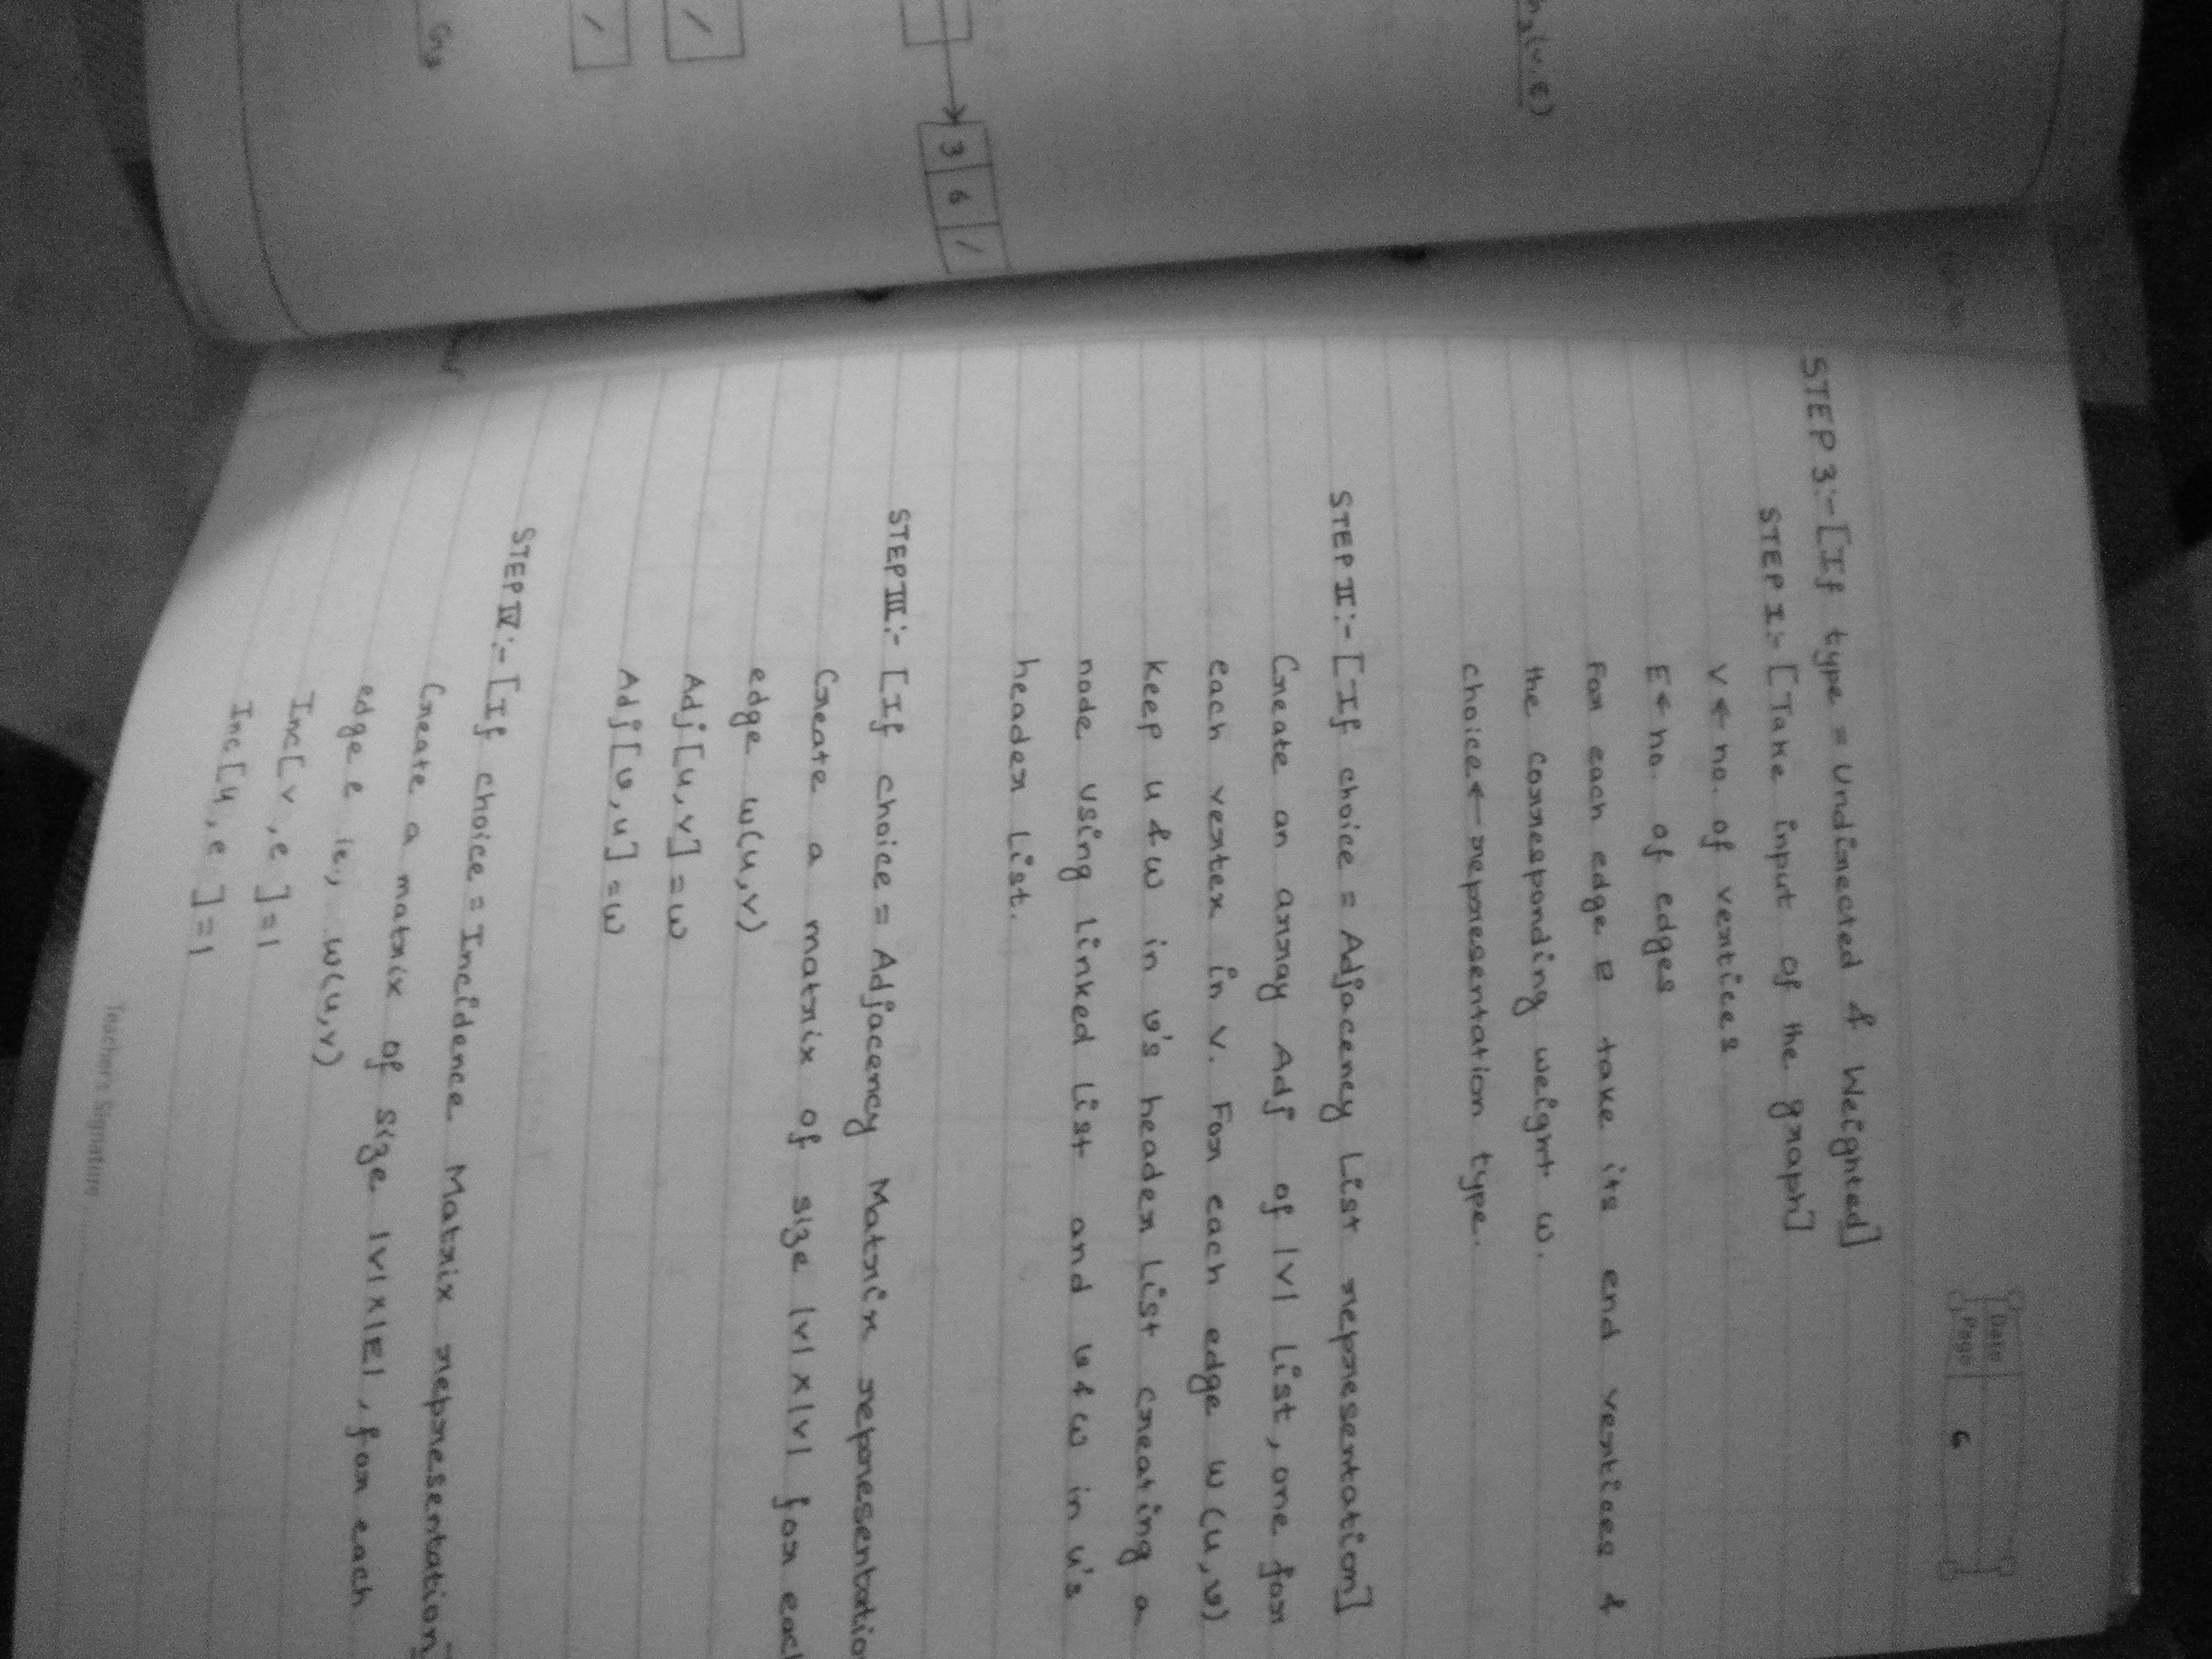 Date
Page 6
STEP 3:-[If type = Undirected & Weighted]
STEP I:- [Take input of the graph]
V ← no. of vertices
E ← no. of edges
For each edge E take its end vertices &
the corresponding weight w.
choice ← representation type.
STEP II:-[If choice = Adjacency List representation]
Create an array Adj of |V| List, one for
each vertex in V. For each edge w(u,v)
keep u & w in v's header List creating a
node using Linked List and v & w in u's
header List.
STEP III:- [If choice = Adjacency Matrix representatio
Create a matrix of size |V| x |V| for each
edge w(u,v)
Adj[u,v] = w
Adj[v,u] = w
STEP IV:-[If choice = Incidence Matrix representation]
Create a matrix of size |V| x |E|, for each
edge e ie., w(u,v)
Inc[v,e] = 1
Inc[u,e] = 1
Teacher's Signature
(v,E)
3 6 /
/
/
G3